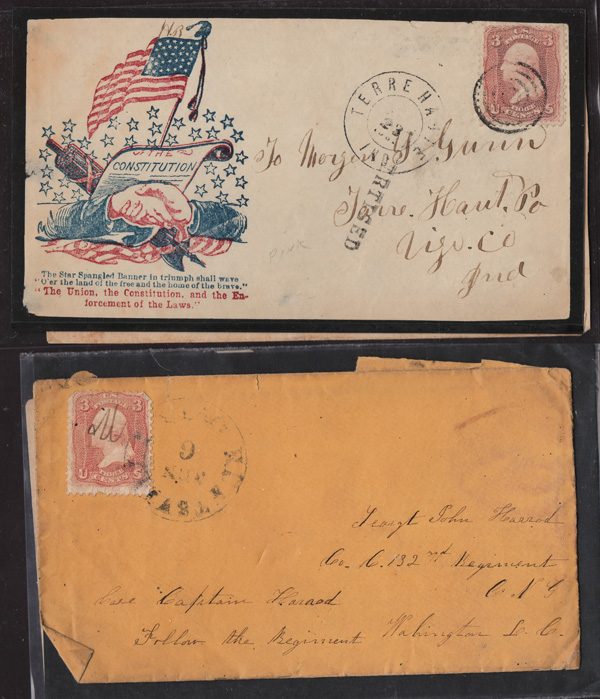 THE
CONSTITUTION
The Star Spangled Banner in triumph shall wave
"O'er the land of the free and the home of the brave."
"The Union, the Constitution, and the En-
forcement of the Laws."
TERRE HAUTE
23
IND
3 3
U CENTS S
To Morgen Gunn
Terre. Haut. Po
Vigo. Co
Ind
pink
3 3
U CENTS S
9
NOV
Seargt John Harrod
Co. C. 132nd Regiment
Care Captain Harrod
Follow the Regiment Wahington D. C.